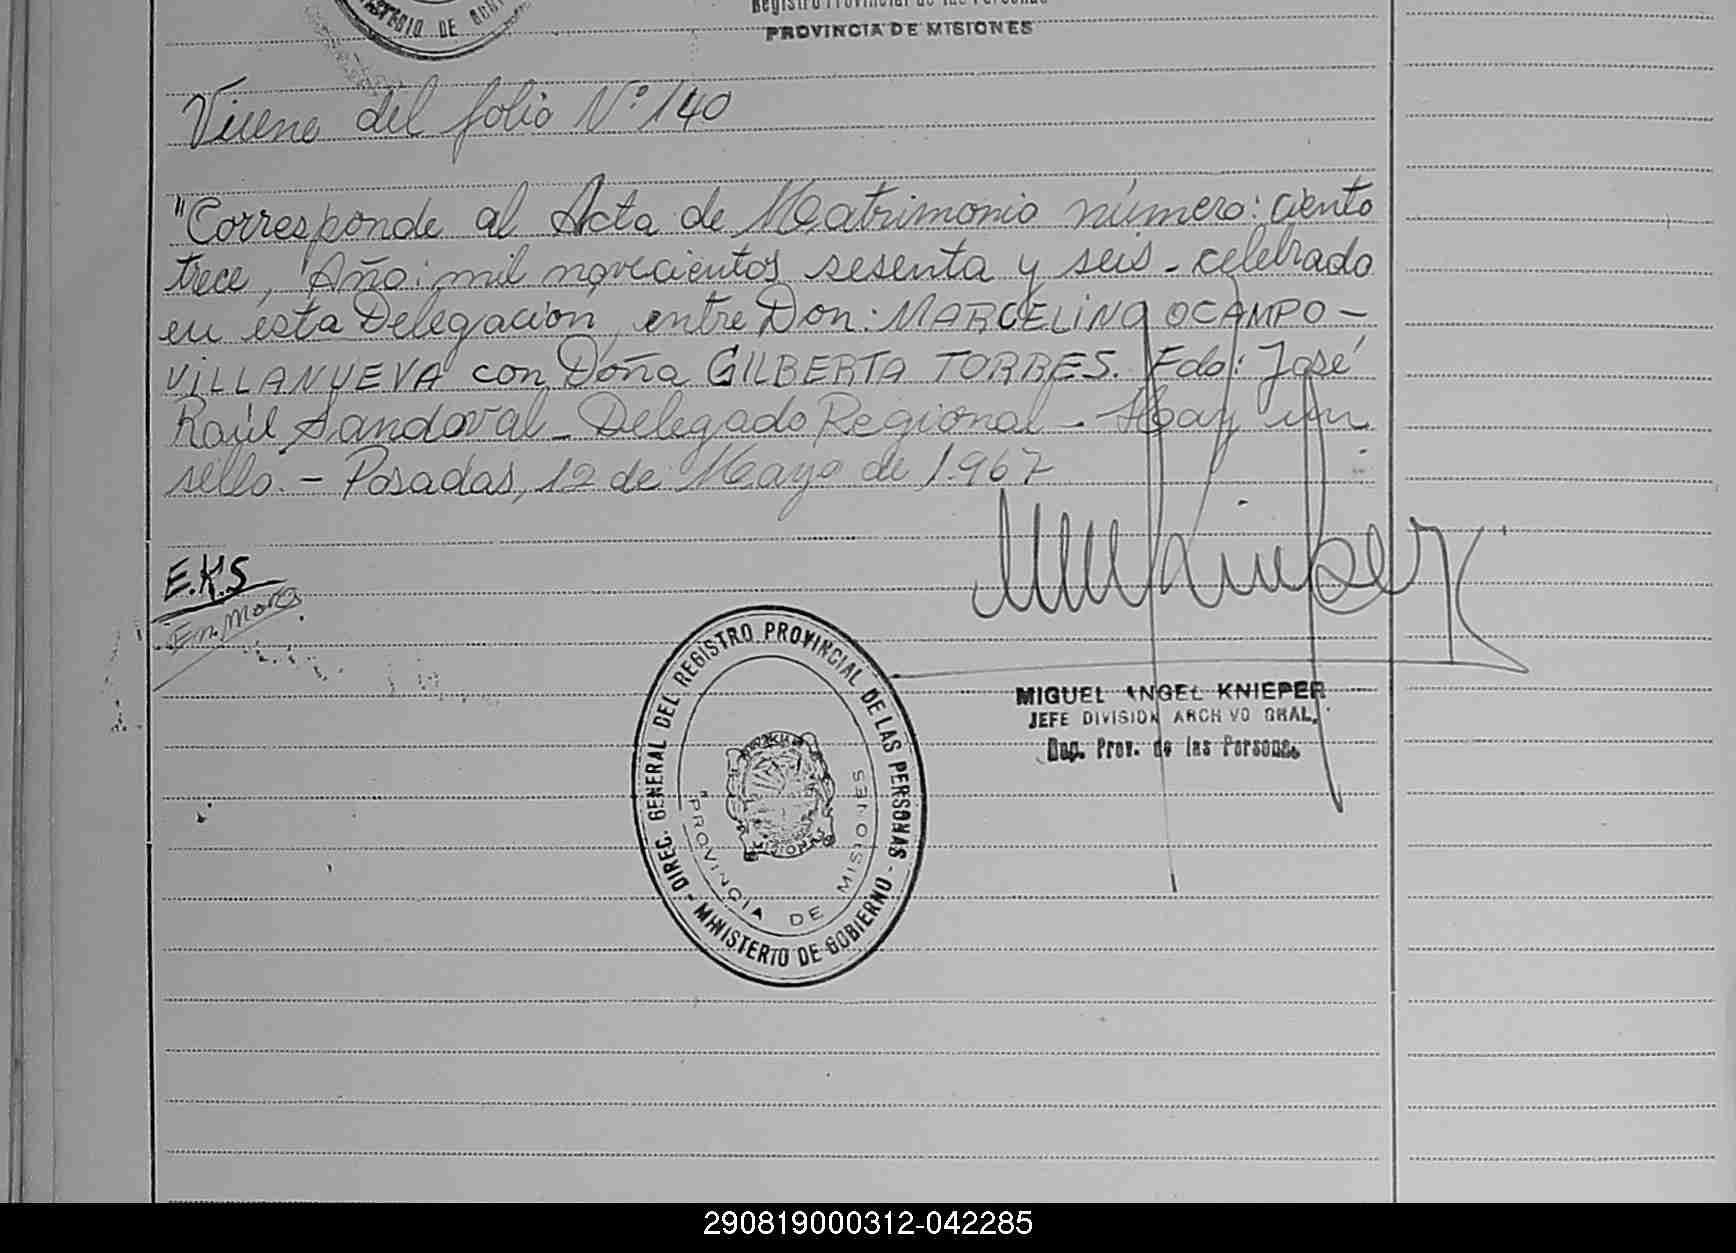 MINISTERIO DE GOBI
Registro Provincial de las Personas
PROVINCIA DE MISIONES
Viene del folio N° 140
"Corresponde al Acta de Matrimonio número: ciento
trece, Año: mil novecientos sesenta y seis - celebrado
en esta Delegación, entre Don: MARCELINO OCAMPO -
VILLANUEVA con Doña GILBERTA TORRES. Fdo: José
Raúl Sandoval - Delegado Regional - Hay un
sello. - Posadas, 12 de Mayo de 1.967
E.K.S
MKnieper
DIREC. GENERAL DEL REGISTRO PROVINCIAL DE LAS PERSONAS - MINISTERIO DE GOBIERNO -
"PROVINCIA DE MISIONES
MISIONES
MIGUEL ANGEL KNIEPER
JEFE DIVISION ARCHIVO GRAL.
Reg. Prov. de las Personas
290819000312-042285